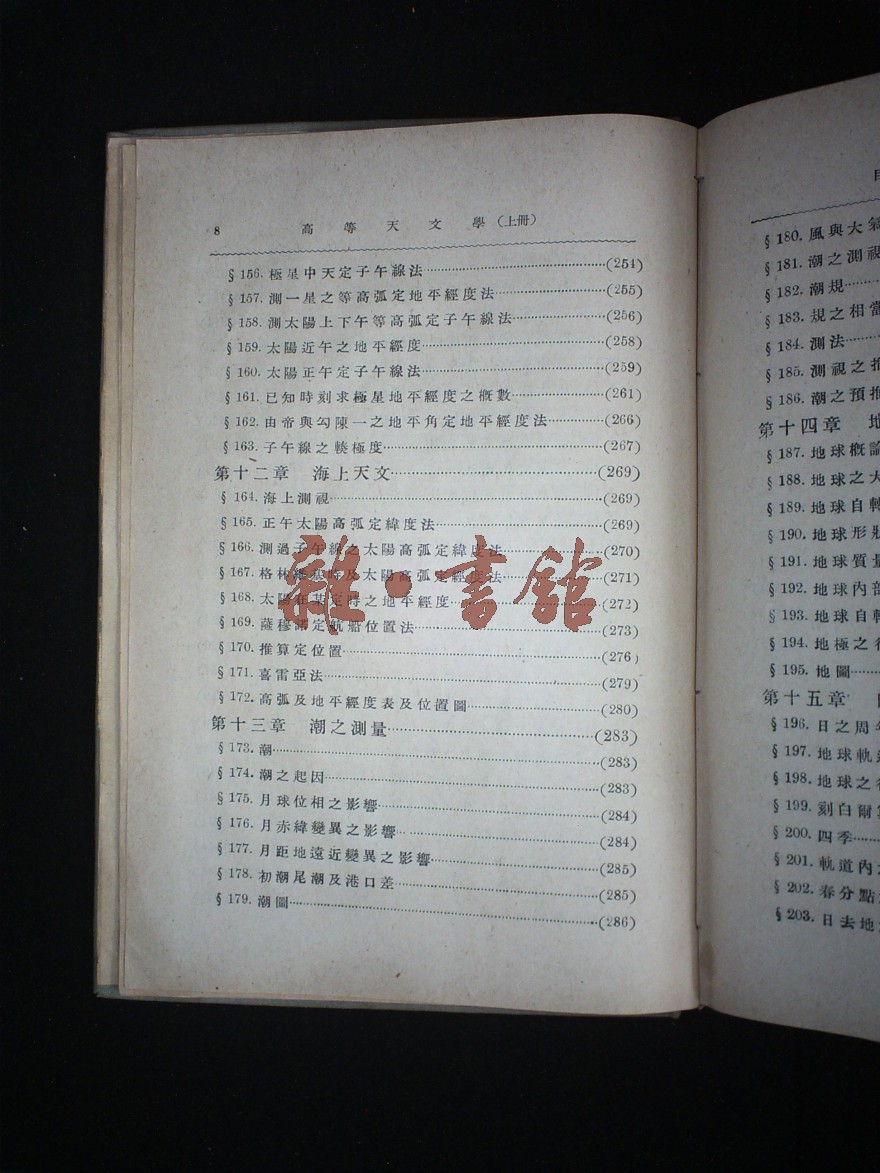 8 高等天文學（上冊）
§ 156. 極星中天定子午線法……(254)
§ 157. 測一星之等高弧定地平經度法……(255)
§ 158. 測太陽上下午等高弧定子午線法……(256)
§ 159. 太陽近午之地平經度……(258)
§ 160. 太陽正午定子午線法……(259)
§ 161. 已知時刻求極星地平經度之概數……(261)
§ 162. 由帝與勾陳一之地平角定地平經度法……(266)
§ 163. 子午線之輳極度……(267)
第十二章 海上天文……(269)
§ 164. 海上測視……(269)
§ 165. 正午太陽高弧定緯度法……(269)
§ 166. 測過子午線之太陽高弧定緯度法……(270)
§ 167. 格林維基時及太陽高弧定經度法……(271)
§ 168. 太陽在某定時之地平經度……(272)
§ 169. 薩穆諾定航船位置法……(273)
§ 170. 推算定位置……(276)
§ 171. 喜雷亞法……(279)
§ 172. 高弧及地平經度表及位置圖……(280)
第十三章 潮之測量……(283)
§ 173. 潮……(283)
§ 174. 潮之起因……(283)
§ 175. 月球位相之影響……(284)
§ 176. 月赤緯變異之影響……(284)
§ 177. 月距地遠近變異之影響……(285)
§ 178. 初潮尾潮及港口差……(285)
§ 179. 潮圖……(286)
雜·書館
§ 180. 風與大氣
§ 181. 潮之測視
§ 182. 潮規……
§ 183. 規之相當
§ 184. 測法……
§ 185. 測視之推
§ 186. 潮之預推
第十四章 地
§ 187. 地球概論
§ 188. 地球之大
§ 189. 地球自轉
§ 190. 地球形狀
§ 191. 地球質量
§ 192. 地球內部
§ 193. 地球自轉
§ 194. 地極之
§ 195. 地圖……
第十五章
§ 196. 日之周年
§ 197. 地球軌道
§ 198. 地球之
§ 199. 刻白爾
§ 200. 四季……
§ 201. 軌道內
§ 202. 春分點
§ 203. 日去地